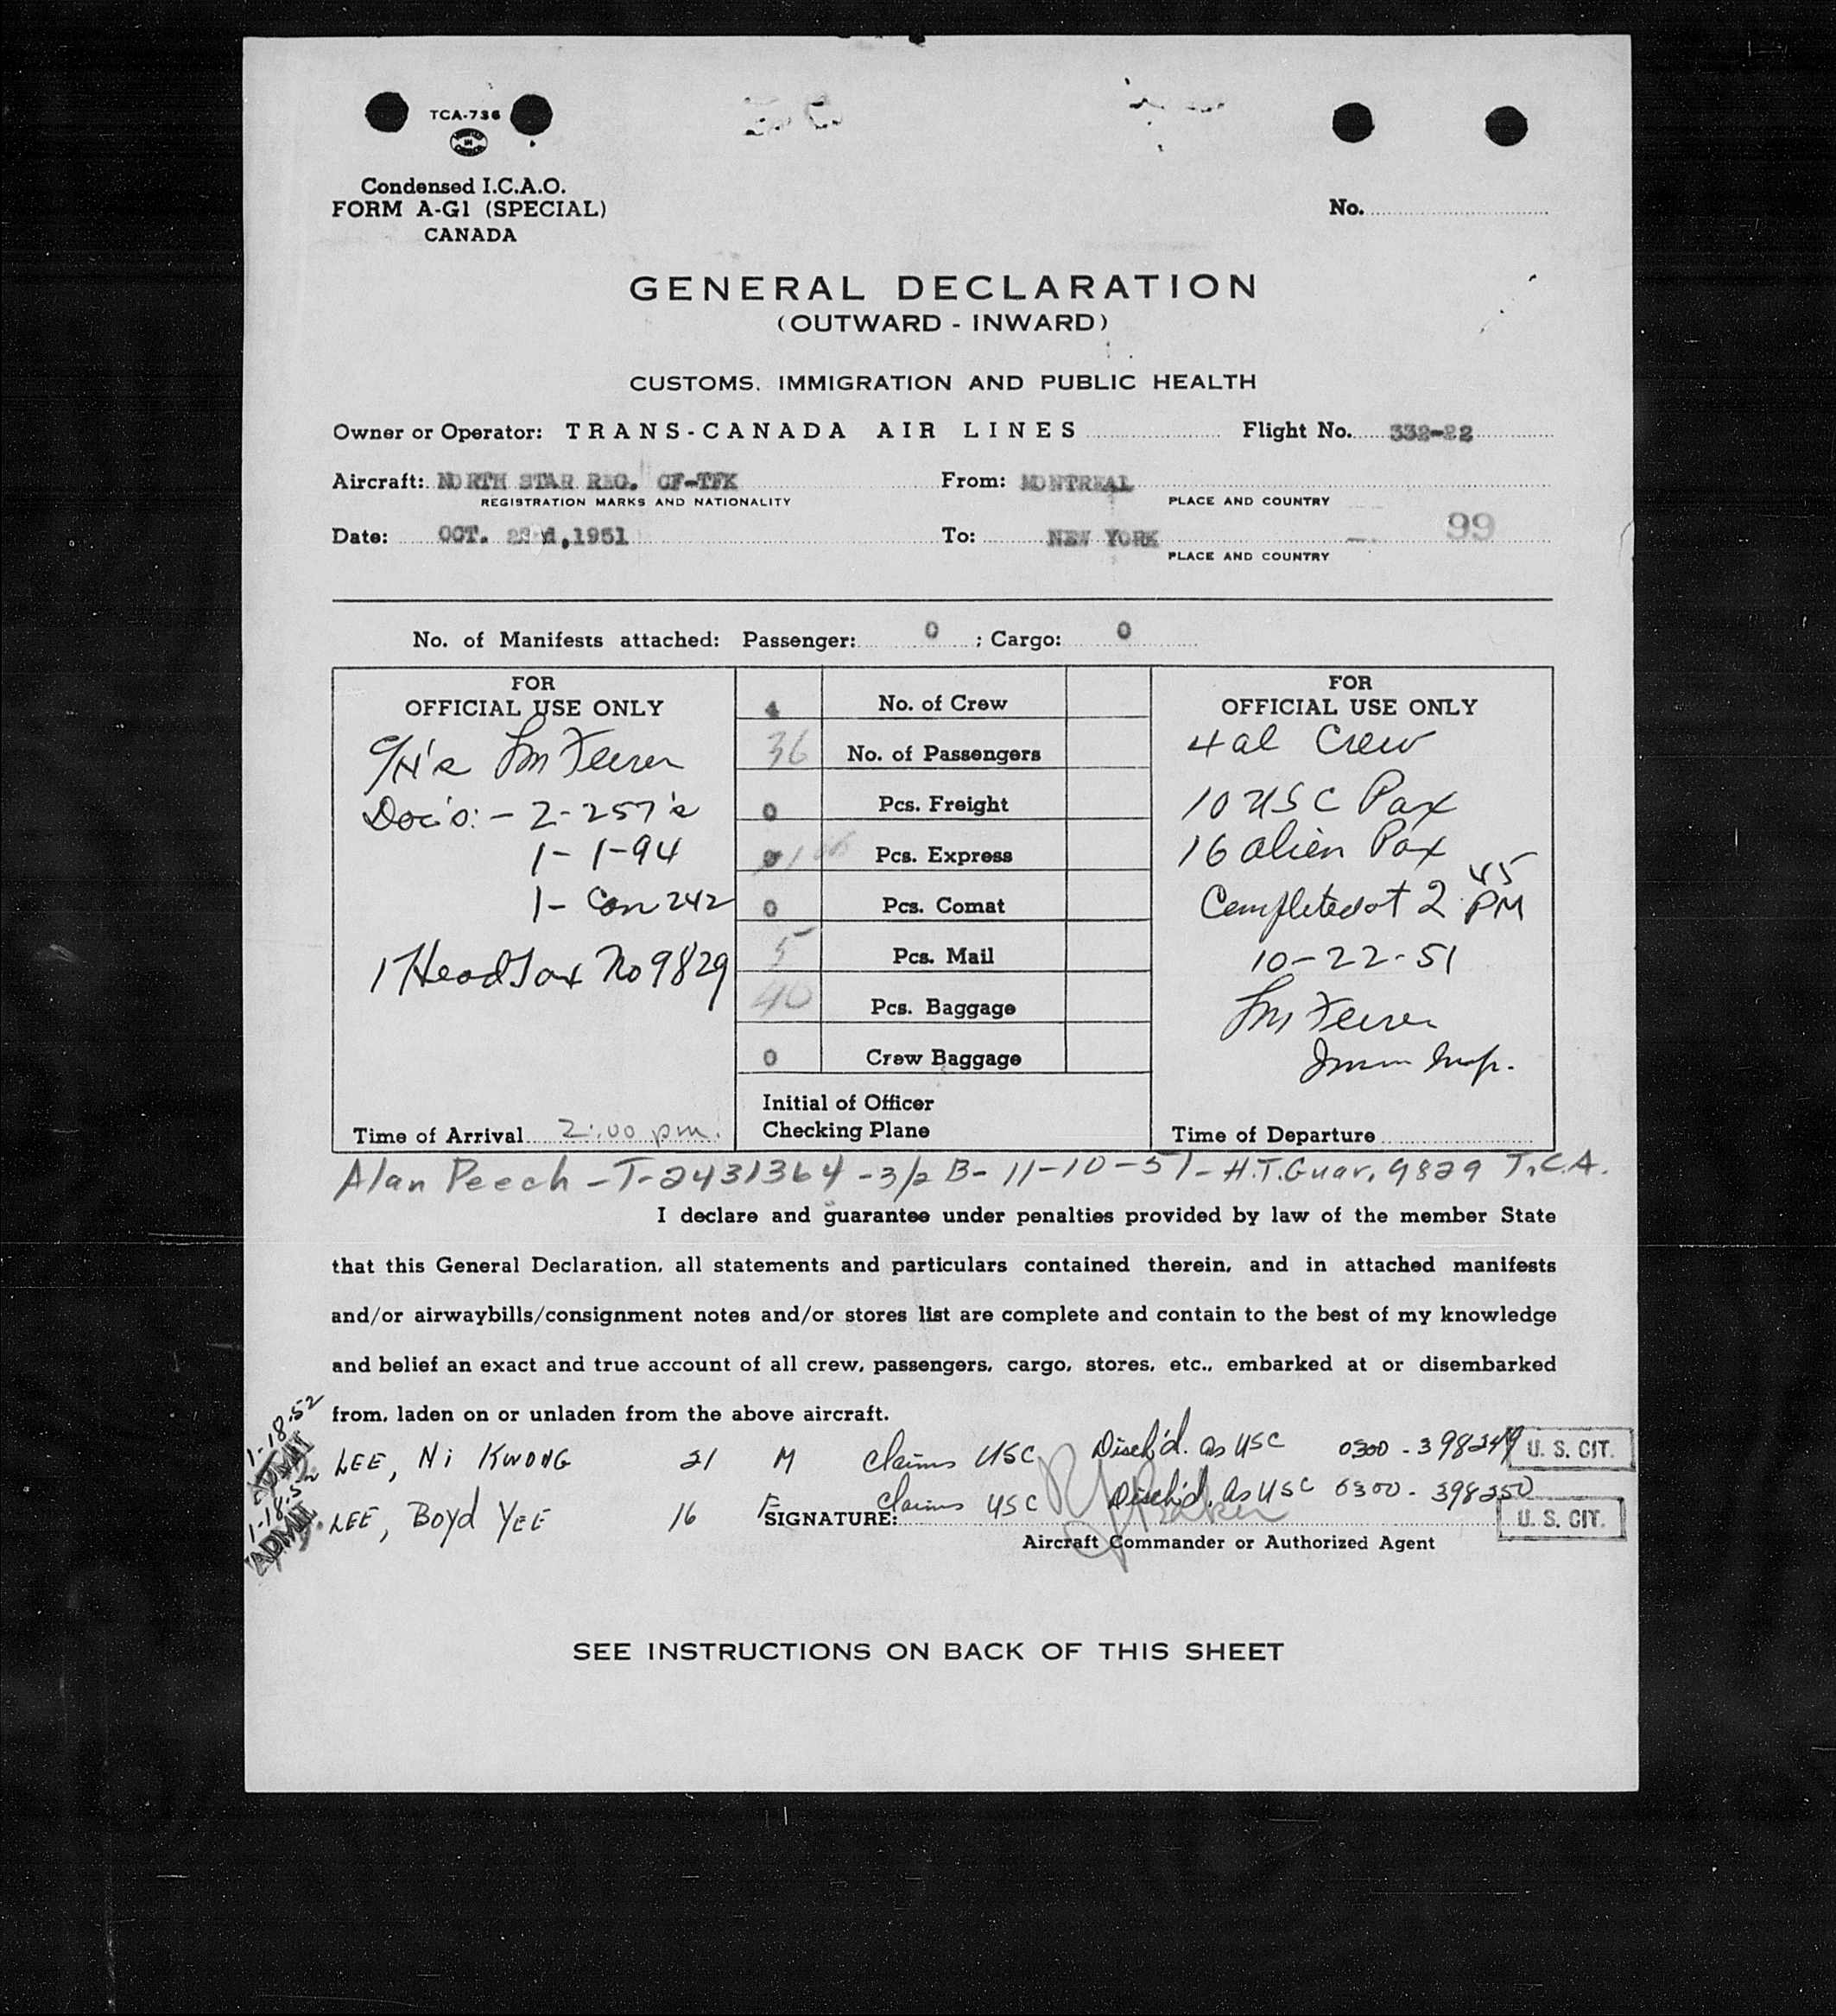 TCA-736
Condensed I.C.A.O.
FORM A-G1 (SPECIAL)
CANADA
No.
GENERAL DECLARATION
(OUTWARD - INWARD)
CUSTOMS, IMMIGRATION AND PUBLIC HEALTH
Owner or Operator: TRANS-CANADA AIR LINES Flight No. 332-22
Aircraft: NORTH STAR REG. CF-TFK From: MONTREAL
REGISTRATION MARKS AND NATIONALITY PLACE AND COUNTRY
Date: OCT. 22d,1951 To: NEW YORK 99
PLACE AND COUNTRY
No. of Manifests attached: Passenger: 0 ; Cargo: 0
FOR
OFFICIAL USE ONLY
Doc's:- 2-257's
1- 1-94
1- Can 242
1 Head Tax No 9829
Time of Arrival 2:00 pm.
4 No. of Crew
36 No. of Passengers
0 Pcs. Freight
Pcs. Express
0 Pcs. Comat
5 Pcs. Mail
40 Pcs. Baggage
0 Crew Baggage
Initial of Officer
Checking Plane
FOR
OFFICIAL USE ONLY
4 al Crew
10 USC Pax
16 alien Pax
Completed at 2 45 PM
10-22-51
Imm Insp.
Time of Departure
Alan Peech -T-2431364 -3/2 B- 11-10-51- H.T.Guar. 9829 T.C.A.
I declare and guarantee under penalties provided by law of the member State
that this General Declaration, all statements and particulars contained therein, and in attached manifests
and/or airwaybills/consignment notes and/or stores list are complete and contain to the best of my knowledge
and belief an exact and true account of all crew, passengers, cargo, stores, etc., embarked at or disembarked
from, laden on or unladen from the above aircraft.
1-18-52 ADMIT LEE, Ni KWONG 21 M Claims USC Disch'd. as USC 0300 - 398249 U. S. CIT.
1-18-52 ADMIT LEE, Boyd YEE 16 F Claims USC Disch'd. as USC 0300 - 398250 U. S. CIT.
SIGNATURE:
Aircraft Commander or Authorized Agent
SEE INSTRUCTIONS ON BACK OF THIS SHEET